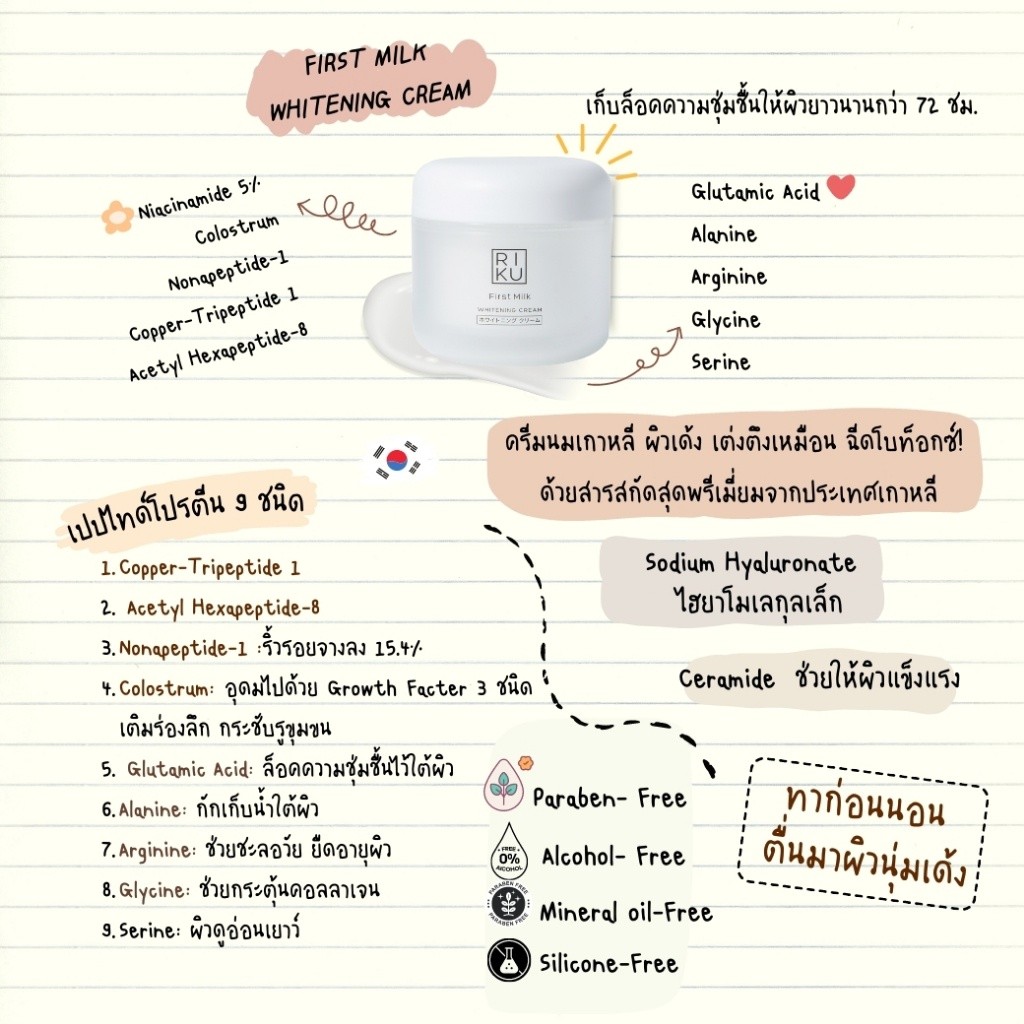 FIRST MILK
WHITENING CREAM
เก็บล็อคความชุ่มชื้นให้ผิวยาวนานกว่า 72 ชม.
Niacinamide 5%
Colostrum
Nonapeptide-1
Copper-Tripeptide 1
Acetyl Hexapeptide-8
RI
KU
First Milk
WHITENING CREAM
ホワイトニング クリーム
Glutamic Acid
Alanine
Arginine
Glycine
Serine
ครีมนมเกาหลี ผิวเด้ง เต่งตึงเหมือน ฉีดโบท็อกซ์!
ด้วยสารสกัดสุดพรีเมี่ยมจากประเทศเกาหลี
เปปไทด์โปรตีน 9 ชนิด
1. Copper-Tripeptide 1
2. Acetyl Hexapeptide-8
3. Nonapeptide-1 :ริ้วรอยจางลง 15.4%
4. Colostrum: อุดมไปด้วย Growth Facter 3 ชนิด
เติมร่องลึก กระชับรูขุมขน
5. Glutamic Acid: ล็อคความชุ่มชื้นไว้ใต้ผิว
6. Alanine: กักเก็บน้ำใต้ผิว
7. Arginine: ช่วยชะลอวัย ยืดอายุผิว
8. Glycine: ช่วยกระตุ้นคอลลาเจน
9. Serine: ผิวดูอ่อนเยาว์
Sodium Hyaluronate
ไฮยาโมเลกุลเล็ก
Ceramide ช่วยให้ผิวแข็งแรง
Paraben- Free
FREE
0%
ALCOHOL
Alcohol- Free
PARABEN FREE
PARABEN FREE
Mineral oil-Free
Silicone-Free
ทาก่อนนอน
ตื่นมาผิวนุ่มเด้ง